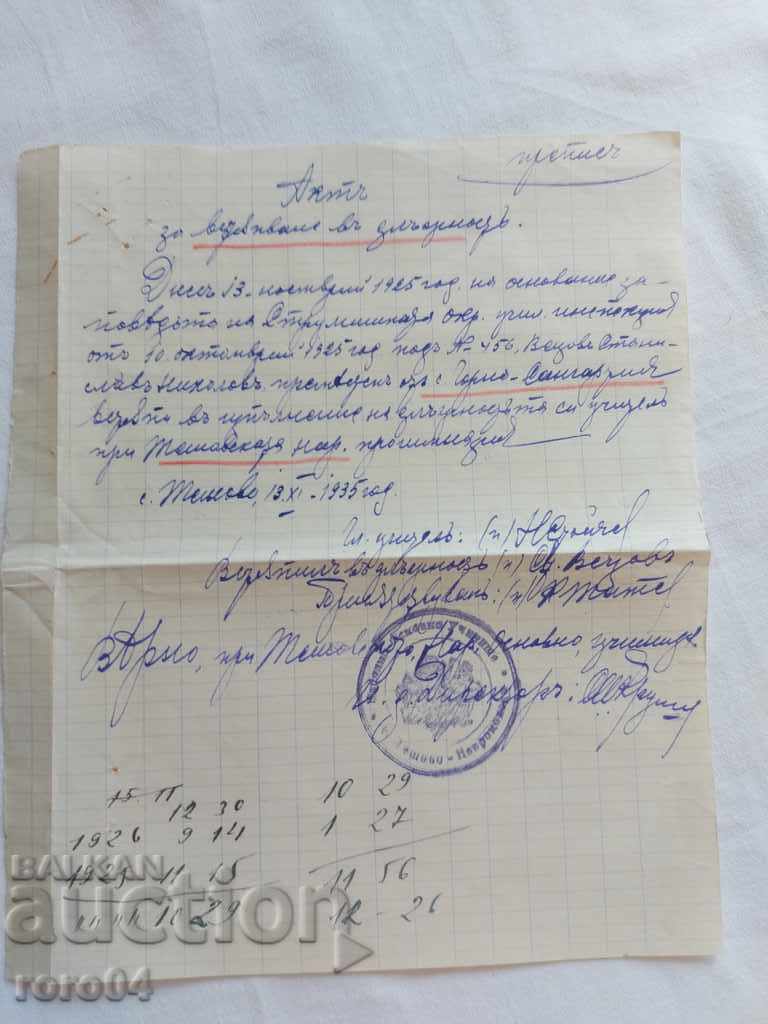 преписъ
Актъ
за встѫпване въ длъжность.
Днесъ 13. ноемврий 1925 год. на основание за-
поведьта на Струмишката окр. учил. инспекция
отъ 10. октомврий 1925 год подъ № 456, Вецовъ Стани-
славъ Николовъ, премѣстенъ отъ с. Горно-
встѫпи въ изпълнение на длъжностьта си учитель
при Тешовската нар. прогимназия
с. Тешово, 13. XI - 1935 год.
Гл. учитель: (п)
Встѫпилъ въ длъжность (п) Ст. Вецовъ
(п)
Вѣрно, при Тешовското Нар. Основно, училище
Директоръ:
Народно Основно Училище
с. Тешово - Неврокопско
15 11
12 30
10 29
1926 9 14
1 27
1925 11 15
11 56
10 29
12 - 26
BALKAN
Auction
roro04